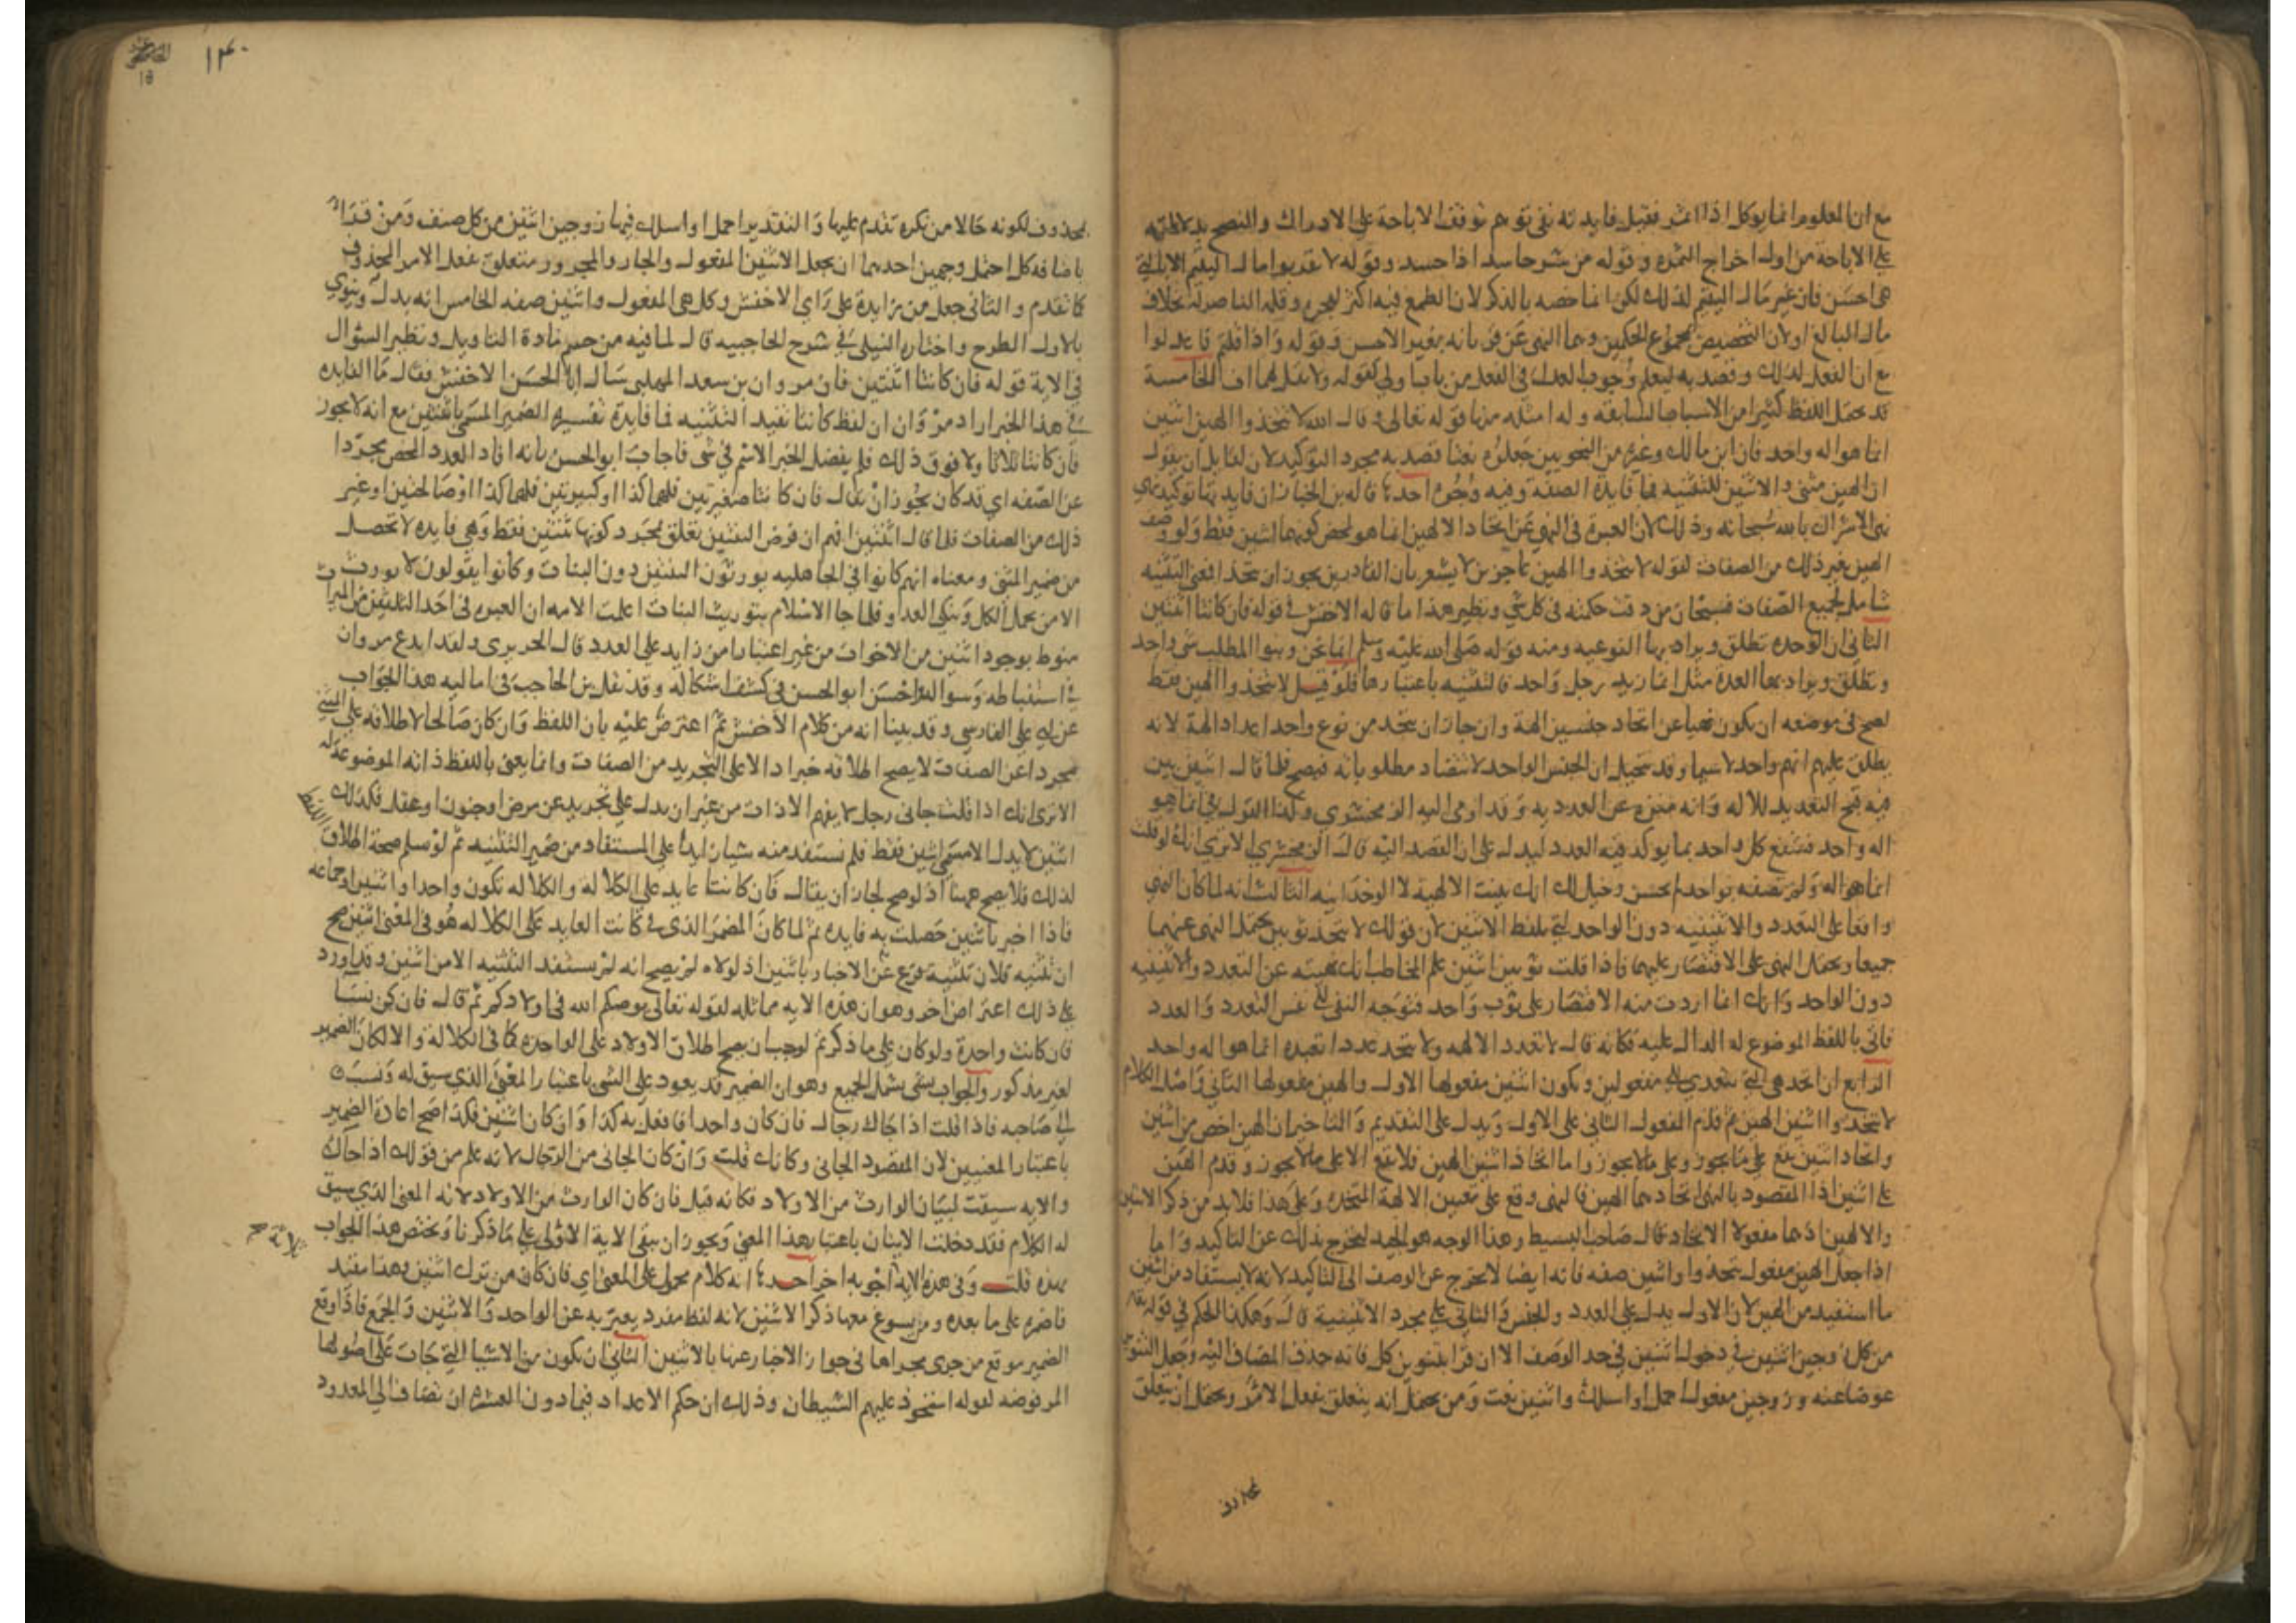 مع ان المعلوم انما يوكل اذا اثمر فقيل فايدته نفي توهم توقف الاباحة على الادراك والنضج بدلالته
على الاباحة من اول اخراج الثمره وقوله من شر حاسد اذا حسد وقوله لا تقربوا مال اليتيم الا بالتي
هي احسن فان غير مال اليتيم كذلك لكن انما خصه بالذكر لان الطمع فيه اكثر لعجزه وقلة الناصر له بخلاف
مال البالغ او لان التخصيص بمجموع الحكمين وهما النهي عن قربانه بغير الاحسن وقوله واذا قلتم فاعدلوا
مع ان الفعل كذلك وقصد به ليعلم وجوب العدل في الفعل من باب اولى كقوله ولا تقل لهما اف الخامسة
قد يحتمل اللفظ كثيرا من الاسباب السابقه وله امثله منها قوله تعالى وقال الله لا تتخذوا الهين اثنين
انما هو اله واحد فان ابن مالك وغيره من النحويين جعلوه نعتا قصد به مجرد التوكيد لان لقايل ان يقول
ان الهين مثنى والاثنين للتثنيه فما فايدة الصفه وفيه وجوه احدها قاله بن الخباز ان فايدتها توكيد
نهي الاشراك بالله سبحانه وذلك لان العبرة في النهي عن اتخاذ الالهين انما هو لمحض كونهما اثنين فقط ولو وصف
الهين بغير ذلك من الصفات كقوله لا تتخذوا الهين عاجزين لاشعر بان القادرين يجوز ان تتخذا فمعنى التثنيه
شامل لجميع الصفات فسبحان من دقت حكمته في كل شي ونظير هذا ما قاله الاخفش في قوله فان كانتا اثنتين
الثاني ان الوحده تطلق ويراد بها النوعيه ومنه قوله صلى الله عليه وسلم انما نحن وبنوا المطلب شي واحد
وتطلق ويراد بها العدة مثل انما زيد رجل واحد فالتثنيه باعتبارها فلو قيل لا تتخذوا الهين فقط
لصح في موضعه ان يكون نهيا عن اتخاذ جنسين الهة وان جاز ان يتخذ من نوع واحد اعداد الهة لانه
يطلق عليهم انهم واحد لا سيما وقد يتخيل ان الجنس الواحد لا تتضاد مطلوباته فيصح فلما قال اثنين بين
فيه قبح التعديد للاله وانه منزه عن العدديه وقد اومى اليه الزمخشري وكذا القول في انما هو
اله واحد فشفع كل واحد بما يوكد فيه العدد ليدل على ان القصد اليه قال الزمخشري الا ترى انك لو قلت
انما هو اله ولم تصفه بواحد لم يحسن وخيل لك انك بينت الالهية لا الوحدانيه الثالث انه لما كان النهي
واقعا على التعدد والاثنينيه دون الواحد اتى بلفظ الاثنين لان قولك لا تتخذ ثوبين يحتمل النهي عنهما
جميعا ويحتمل النهي على الاقتصار عليهما فاذا قلت ثوبين اثنين علم المخاطب انك نهيته عن التعدد والاثنينيه
دون الواحد وانك انما اردت منه الاقتصار على ثوب واحد فتوجه النفي الى نفس التعدد والعدد
فاتى باللفظ الموضوع له الدال عليه فكانه قال لا تعدد الالهه ولا تتخذ عددا تعبده انما هو اله واحد
الرابع ان اتخذ هي التي تتعدى الى مفعولين ويكون اثنين مفعولها الاول والهين مفعولها الثاني واصل الكلام
لا تتخذوا اثنين الهين ثم قدم المفعول الثاني على الاول ويدل على التقديم والتاخير ان الهين اخص من اثنين
واتخاذ اثنين يقع على ما يجوز وعلى ما لا يجوز واما اتخاذ اثنين الهين فلا يقع الا على ما لا يجوز وقدم الهين
على اثنين اذ المقصود بالنهي اتخاذهما الهين فالنهي وقع على تعيين الالهة المتخذه وعلى هذا فلا بد من ذكر الاثنين
والالهين اذ هما مفعولا الاتخاذ قال صاحب البسيط وهذا الوجه هو الجيد ليخرج بذلك عن التاكيد واما
اذا جعل الهين مفعول يتخذوا واثنين صفه فانه ايضا لا يخرج عن الوصف الى التاكيد لانه لا يستفاد من اثنين
ما استفيد من الهين لان الاول يدل على العدد والجنس والثاني على مجرد الاثنينية قال وهكذا الحكم في قوله تعالى
من كل زوجين اثنين في دخول اثنين في حد الوصف الا ان من قرا بتنوين كل فانه حذف المضاف اليه وجعل التنوين
عوضا عنه وزوجين مفعول احمل او اسلك واثنين نعت ومن يحتمل انه يتعلق بفعل الامر ويحتمل ان يتعلق
بمحذوف
١٤٠
18
بمحذوف لكونه حالا من نكره تقدم عليها والتقدير احمل او اسلك فيها زوجين اثنين من كل صنف ومن قرا
باضافه كل احتمل وجهين احدهما ان يجعل الاثنين المفعول والجار والمجرور متعلق بفعل الامر المحذوف
كما تقدم والثاني جعل من زايدة على راي الاخفش وكل هي المفعول واثنين صفه الخامس انه بدل وينوي
بالاول الطرح واختاره النيلي في شرح الحاجبيه قال لما فيه من حسم مادة التاويل ونظير السوال
في الاية قوله فان كانتا اثنتين فان مروان بن سعد المهلبي سال ابا الحسن الاخفش فقال ما الفايده
في هذا الخبر اراد مروان ان لفظ كانتا تفيد التثنيه فما فايدة تفسيره الضمير المسمى باثنتين مع انه لا يجوز
فان كانتا ثلاثا ولا فوق ذلك فلم يفصل الخبر الاسم في شي فاجاب ابو الحسن بانه افاد العدد المحض مجردا
عن الصفه اي قد كان يجوز ان يقال فان كانتا صغيرتين فلهما كذا او كبيرتين فلهما كذا او صالحتين او غير
ذلك من الصفات فلما قال اثنتين افهم ان فرض الثنتين تعلق بمجرد كونهما ثنتين فقط وهي فايده لا تحصل
من ضمير المثنى ومعناه انهم كانوا في الجاهليه يورثون البنين دون البنات وكانوا يقولون لا يورث
الا من يحمل الكل وينكي العدو فلما جا الاسلام بتوريث البنات اعلمت الايه ان العبره في اخذ الثلثين من الميراث
منوط بوجود اثنين من الاخوات من غير اعتبار امر زايد على العدد قال الحريري ولقد ابدع مروان
في استنباطه وسواله واحسن ابو الحسن في كشف اشكاله وقد نقل بن الحاجب في اماليه هذا الجواب
عن ابي علي الفارسي وقد بينا انه من كلام الاخفش ثم اعترض عليه بان اللفظ وان كان صالحا لاطلاقه على الشي
مجردا عن الصفات لا يصح اطلاقه خبرا دالا على التجريد من الصفات وانما يعني باللفظ ذاته الموضوعه له
الا ترى انك اذا قلت جاني رجل لا يفهم الا ذات من غير ان يدل على تجريد عن مرض او جنون او عقل فكذلك
اثنين لا يدل الا مسمى اثنين فقط فلم نستفد منه شيا زايدا على المستفاد من ضمير التثنيه ثم لو سلم صحة اطلاق اللفظ
لذلك فلا يصح ههنا اذ لو صح لجاز ان يقال فان كانتا عايد على الكلاله والكلاله تكون واحدا واثنين وجماعه
فاذا اخبر باثنين حصلت به فايده ثم لما كان الضمير الذي في كانت العايد على الكلاله هو في المعنى اثنين صح
ان تثنيه فلان تثنيته فرع عن الاخبار باثنين اذ لولاه لم يصح انه لم يستفد التثنيه الا من اثنين وقد اورد
على ذلك اعتراض اخر وهو ان هذه الايه مماثله لقوله تعالى يوصيكم الله في اولادكم ثم قال فان كن نسا
فان كانت واحدة ولو كان على ما ذكرتم لوجب ان يصح اطلاق الاولاد على الواحده كما في الكلالة والا لكان الضمير
لغير مذكور والجواب بشي يشمل الجميع وهو ان الضمير قد يعود على الشي باعتبار المعنى الذي سيق له ونسب
الى صاحبه فاذا قلت اذا جاك رجال فان كان واحدا فافعل به كذا وان كان اثنين فكذا صح اعادة الضمير
باعتبار المعنيين لان المقصود الجاني وكانك قلت وان كان الجاني من الرجال لانه علم من قولك اذا جاك
والايه سيقت لبيان الوارث من الاولاد فكانه قيل فان كان الوارث من الاولاد لانه المعنى الذي سيق
له الكلام فقد دخلت الاثنان باعتبار هذا المعنى ويجوز ان يبقى الاية الاولى على ما ذكرنا ويختص هذا الجواب
بهذه قلت وفي هذه الاية اجوبه اخر ثلاثة احدها انه كلام محمول على المعنى اي فان كان من ترك اثنتين وهذا مفيد
فاضمره على ما بعده ومن يسوغ معها ذكر الاثنين لانه لفظ مفرد يعبر به عن الواحد والاثنين والجمع فاذا وقع
الضمير موقع من جرى مجراها في جواز الاخبار عنها بالاثنين الثاني ان يكون من الاشيا التي جات على اصولها
المرفوضه كقوله استحوذ عليهم الشيطان وذلك ان حكم الاعداد فيما دون العشره ان تضاف الى المعدود